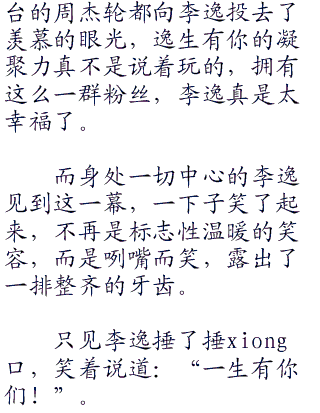 台的周杰轮都向李逸投去了
羡慕的眼光，逸生有你的凝
聚力真不是说着玩的，拥有
这么一群粉丝，李逸真是太
幸福了。
而身处一切中心的李逸
见到这一幕，一下子笑了起
来，不再是标志性温暖的笑
容，而是咧嘴而笑，露出了
一排整齐的牙齿。
只见李逸捶了捶xiong
口，笑着说道：“一生有你
们！”。